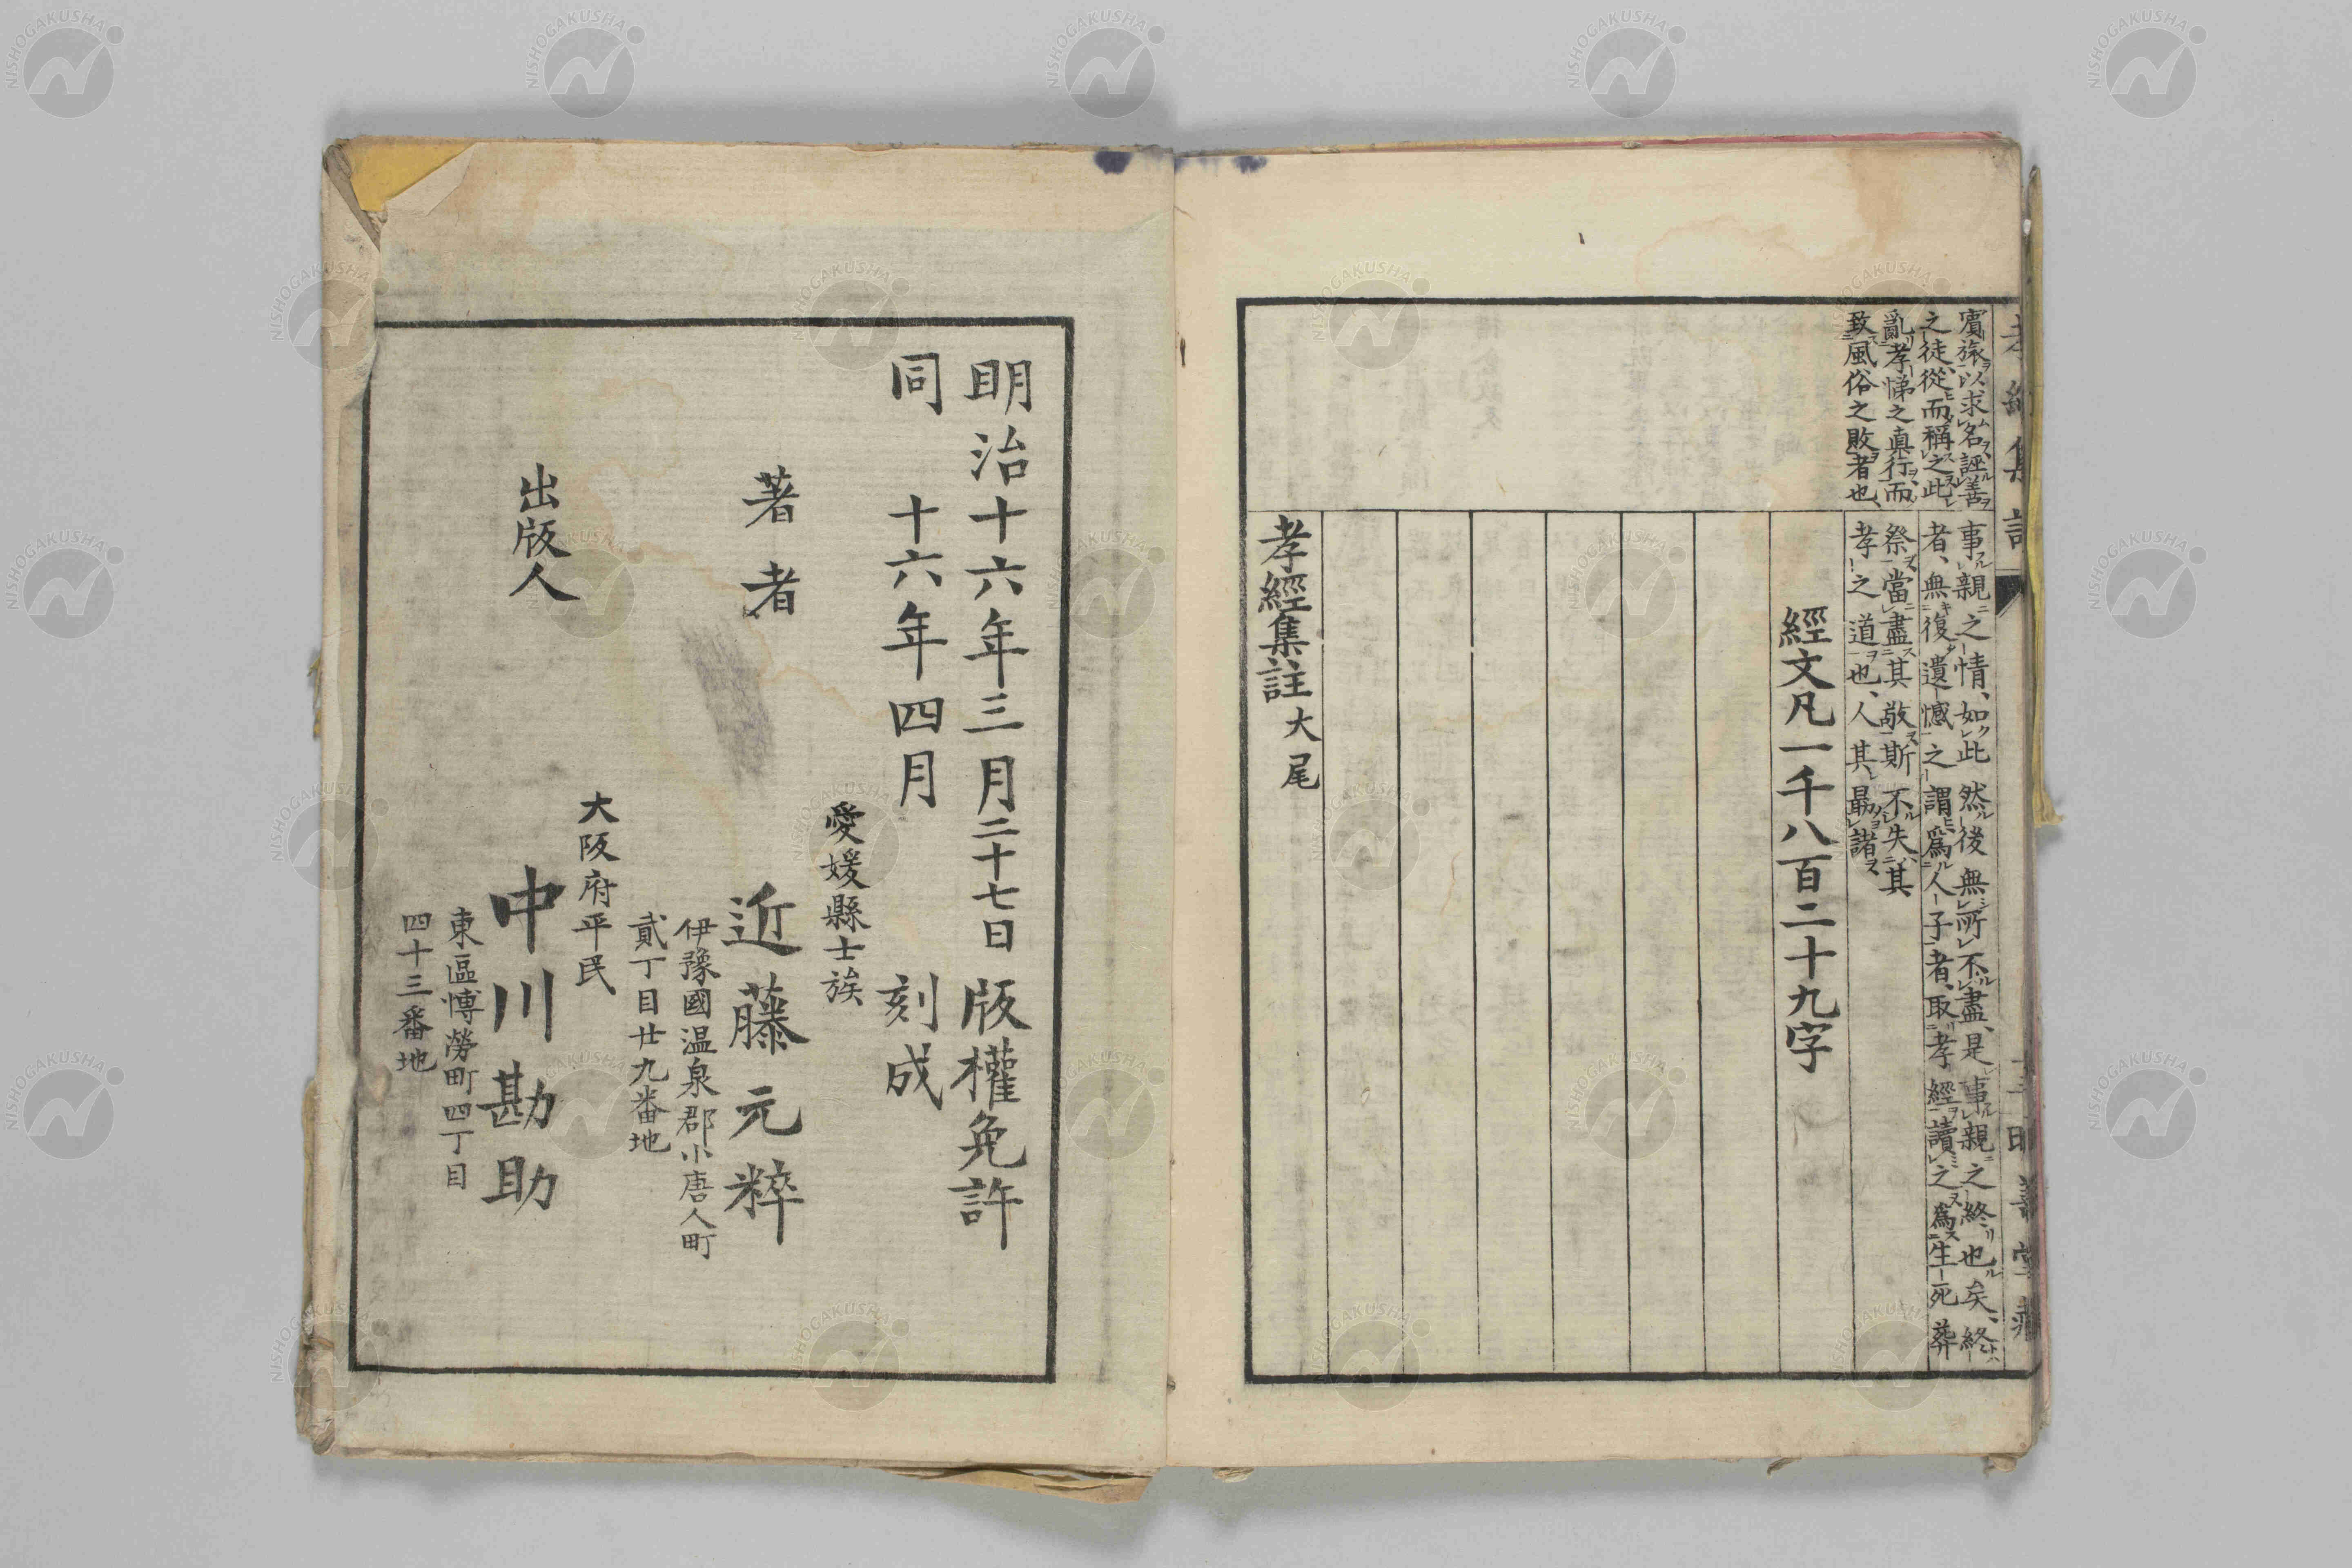 孝經集註
賓旅以求名誣善
之徒、從而稱之此
亂孝悌之真行、而
致風俗之敗者也、
事親之情、如此然後無所不盡、是事親之終也矣、終
者、無復遺憾之謂爲人子者、取孝經讀之爲生死葬
祭當盡其敬斯不失其
孝之道也、人其最諸
經文凡一千八百二十九字
孝經集註大尾
明治十六年三月二十七日版權免許
同十六年四月刻成
愛媛縣士族
著者 近藤元粹
伊豫國温泉郡小唐人町
貳丁目廿九番地
大阪府平民
出版人 中川勘助
東區博勞町四丁目
四十三番地
NISHOGAKUSHA